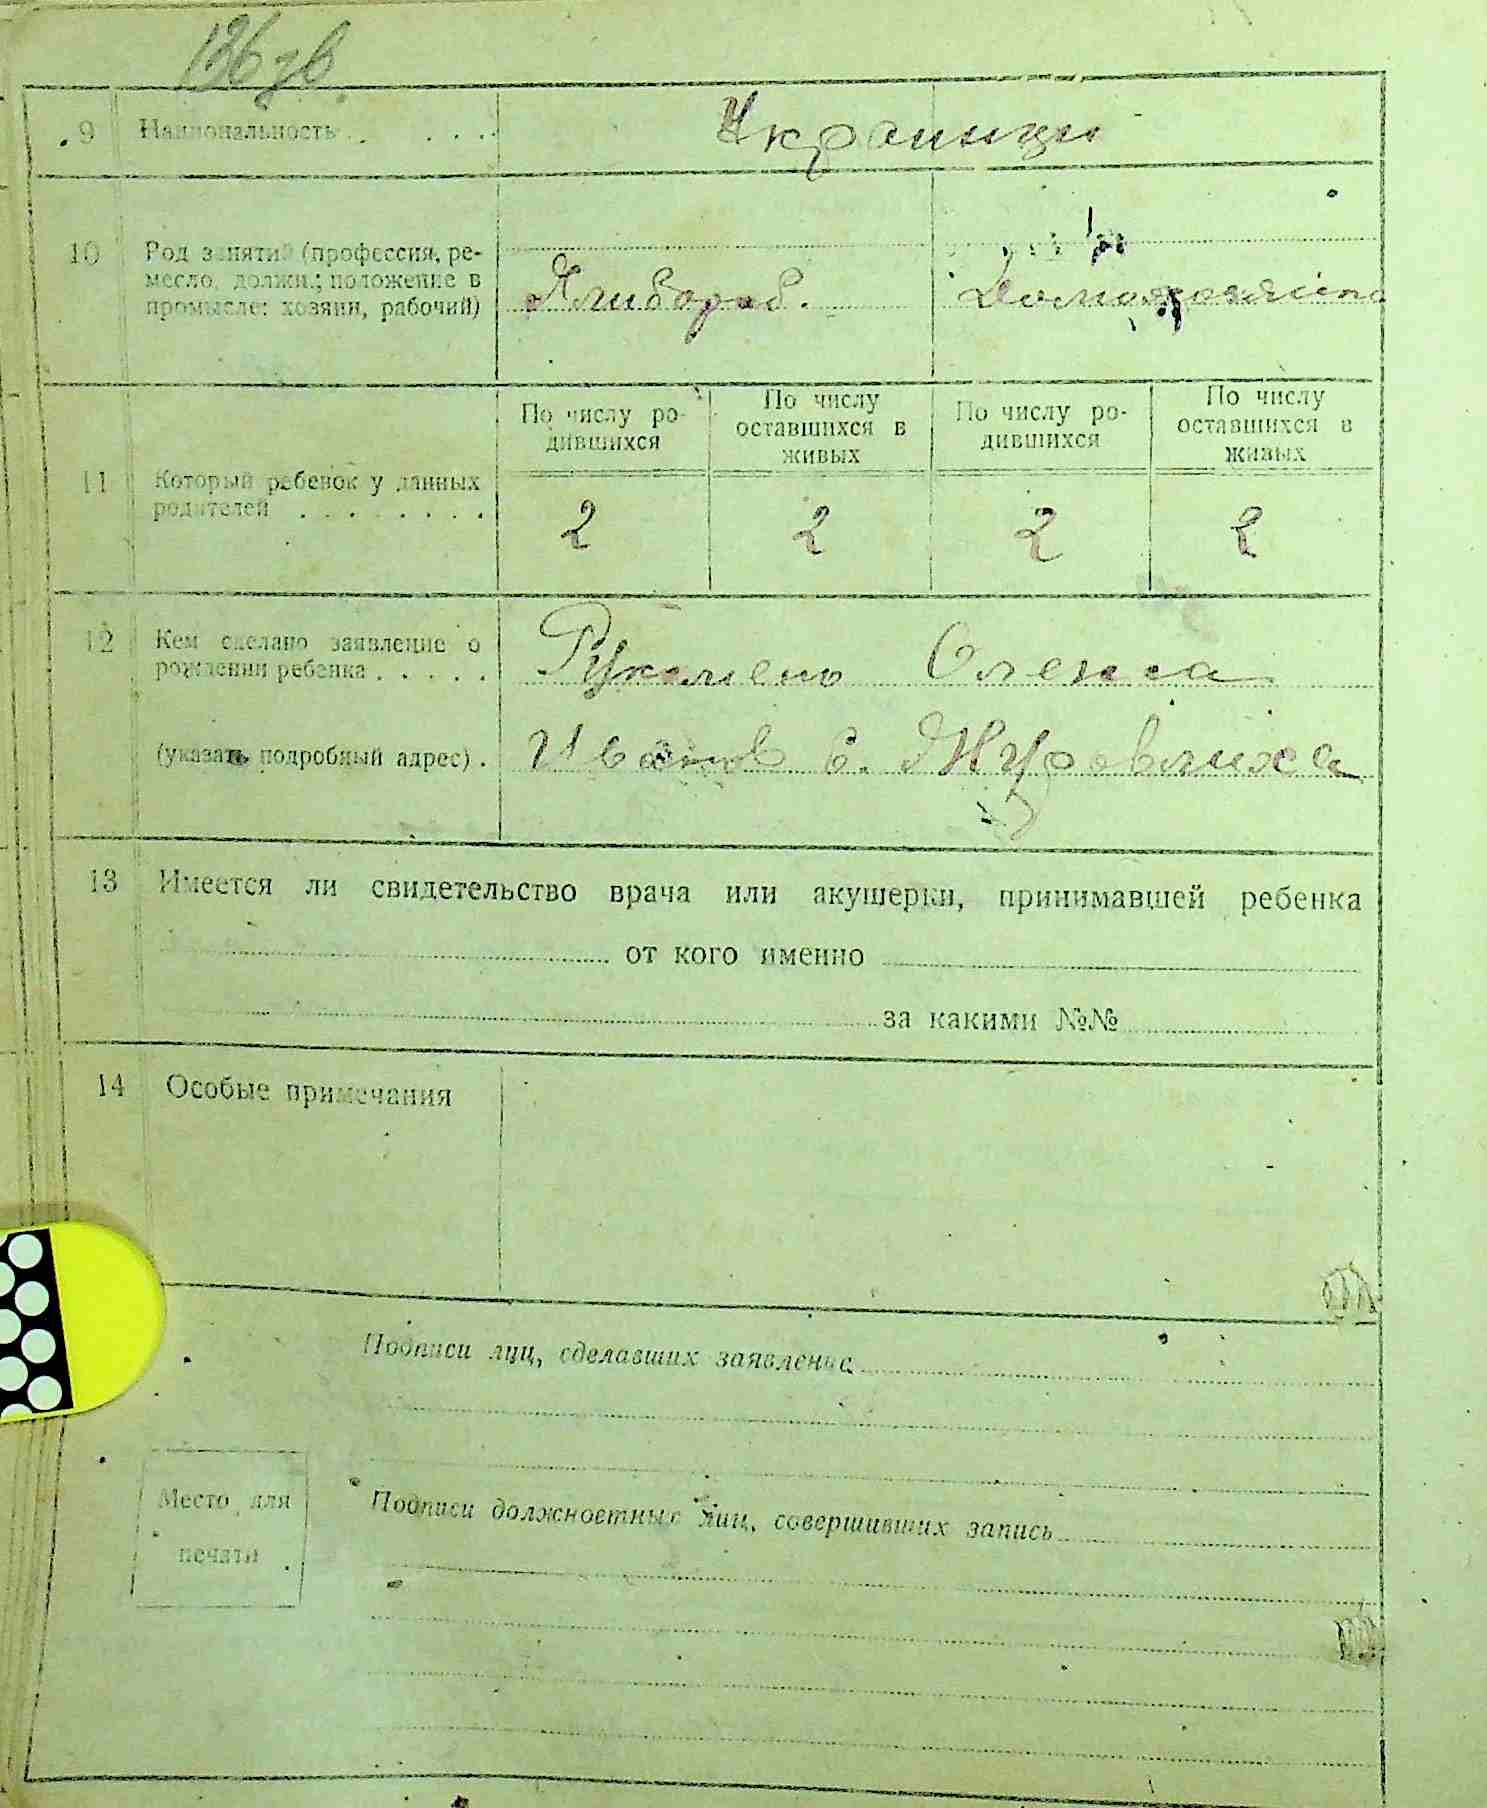 136 зв
9 Национальность . . . . . Украинцы
10 Род занятий (профессия, ре-
месло, должн.; положение в
промысле: хозяин, рабочий)
Хлибороб. Домохозяйка
11 Который ребенок у данных
родителей . . . . . . . .
По числу ро-
дившихся
По числу
оставшихся в
живых
По числу ро-
дившихся
По числу
оставшихся в
живых
2 2 2 2
12 Кем сделано заявление о
рождении ребенка . . . . .
Олекса
(указать подробный адрес) .
Иванов с. Журовлиха
13 Имеется ли свидетельство врача или акушерки, принимавшей ребенка
от кого именно
за какими №№
14 Особые примечания
Подписи лиц, сделавших заявление
Место для
печати
Подписи должностных лиц, совершивших запись